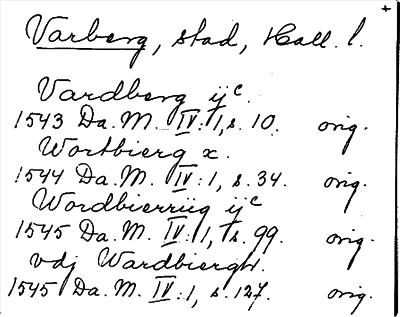 Varberg, stad, Hall. l.
Vardberg ijc.
1543 Da. M. IV: 1, s. 10. orig.
Wortbierg x.
1544 Da. M. IV: 1, s. 34. orig.
Wordbierrüg ijc
1545 Da. M. IV: 1, s. 99. orig.
vdj Wardbiergh.
1545 Da. M. IV: 1, s. 127. orig.